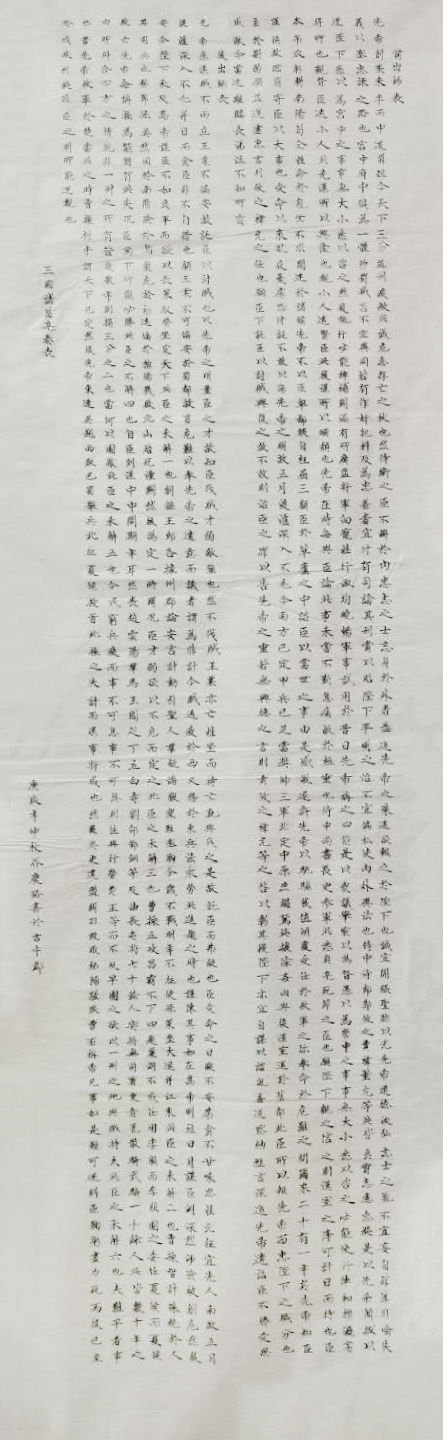 前出師表
先帝創業未半而中道崩殂今天下三分益州疲敝此誠危急存亡之秋也然侍衛之臣不懈於內忠志之士忘身於外者蓋追先帝之殊遇欲報之於陛下也誠宜開張聖聽以光先帝遺德恢弘志士之氣不宜妄自菲薄引喻失
義以塞忠諫之路也宮中府中俱為一體陟罰臧否不宜異同若有作奸犯科及為忠善者宜付有司論其刑賞以昭陛下平明之治不宜偏私使內外異法也侍中侍郎郭攸之費禕董允等此皆良實志慮忠純是以先帝簡拔以
遺陛下愚以為宮中之事事無大小悉以咨之然後施行必能裨補闕漏有所廣益將軍向寵性行淑均曉暢軍事試用於昔日先帝稱之曰能是以眾議舉寵以為督愚以為營中之事事無大小悉以咨之必能使行陣和穆優劣
得所也親賢臣遠小人此先漢所以興隆也親小人遠賢臣此後漢所以傾頹也先帝在時每與臣論此事未嘗不歎息痛恨於桓靈也侍中尚書長史參軍此悉貞亮死節之臣也願陛下親之信之則漢室之隆可計日而待也臣
本布衣躬耕南陽苟全性命於亂世不求聞達於諸侯先帝不以臣卑鄙猥自枉屈三顧臣於草廬之中諮臣以當世之事由是感激遂許先帝以驅馳後值傾覆受任於敗軍之際奉命於危難之間爾來二十有一年矣先帝知臣
謹慎故臨崩寄臣以大事也受命以來夙夜憂慮恐付託不效以傷先帝之明故五月渡瀘深入不毛今南方已定甲兵已足當獎帥三軍北定中原庶竭駑鈍攘除姦凶興復漢室還於舊都此臣所以報先帝而忠陛下之職分也
至於斟酌損益進盡忠言則攸之禕允之任也願陛下託臣以討賊興復之效不效則治臣之罪以告先帝之靈若無興德之言則責攸之禕允等之咎以彰其慢陛下亦宜自謀以諮諏善道察納雅言深追先帝遺詔臣不勝受恩
感激今當遠離臨表涕泣不知所云
後出師表
先帝慮漢賊不兩立王業不偏安故託臣以討賊也以先帝之明量臣之才故知臣伐賊才弱敵強也然不伐賊王業亦亡惟坐而待亡孰與伐之是故託臣而弗疑也臣受命之日寢不安席食不甘味思惟北征宜先入南故五月
渡瀘深入不毛并日而食臣非不自惜也顧王業不可偏安於蜀都故冒危難以奉先帝之遺意而議者謂為非計今賊適疲於西又務於東兵法乘勞此進趨之時也謹陳其事如左高帝明並日月謀臣淵深然涉險被創危然後
安今陛下未及高帝謀臣不如良平而欲以長策取勝坐定天下此臣之未解一也劉繇王朗各據州郡論安言計動引聖人群疑滿腹眾難塞胸今歲不戰明年不征使孫策坐大遂并江東此臣之未解二也曹操智計殊絕於人
其用兵也髣髴孫吳然困於南陽險於烏巢危於祁連偪於黎陽幾敗北山殆死潼關然後偽定一時爾況臣才弱欲以不危而定之此臣之未解三也曹操五攻昌霸不下四越巢湖不成任用李服而李服圖之委任夏侯而夏侯
敗亡先帝每稱操為能猶有此失況臣駑下何能必勝此臣之未解四也自臣到漢中中間期年耳然喪趙雲陽群馬玉閻芝丁立白壽劉郃鄧銅等及曲長屯將七十餘人突將無前賨叟青羌散騎武騎一千餘人此皆數十年之
內所糾合四方之精銳非一州之所有若復數年則損三分之二也當何以圖敵此臣之未解五也今民窮兵疲而事不可息事不可息則住與行勞費正等而不及早圖之欲以一州之地與賊持久此臣之未解六也夫難平者事
也昔先帝敗軍於楚當此之時曹操拊手謂天下已定然後先帝東連吳越西取巴蜀舉兵北征夏侯授首此操之失計而漢事將成也然後吳更違盟關羽毀敗秭歸蹉跌曹丕稱帝凡事如是難可逆料臣鞠躬盡力死而後已至
於成敗利鈍非臣之明所能逆睹也
三國諸葛亮奏表